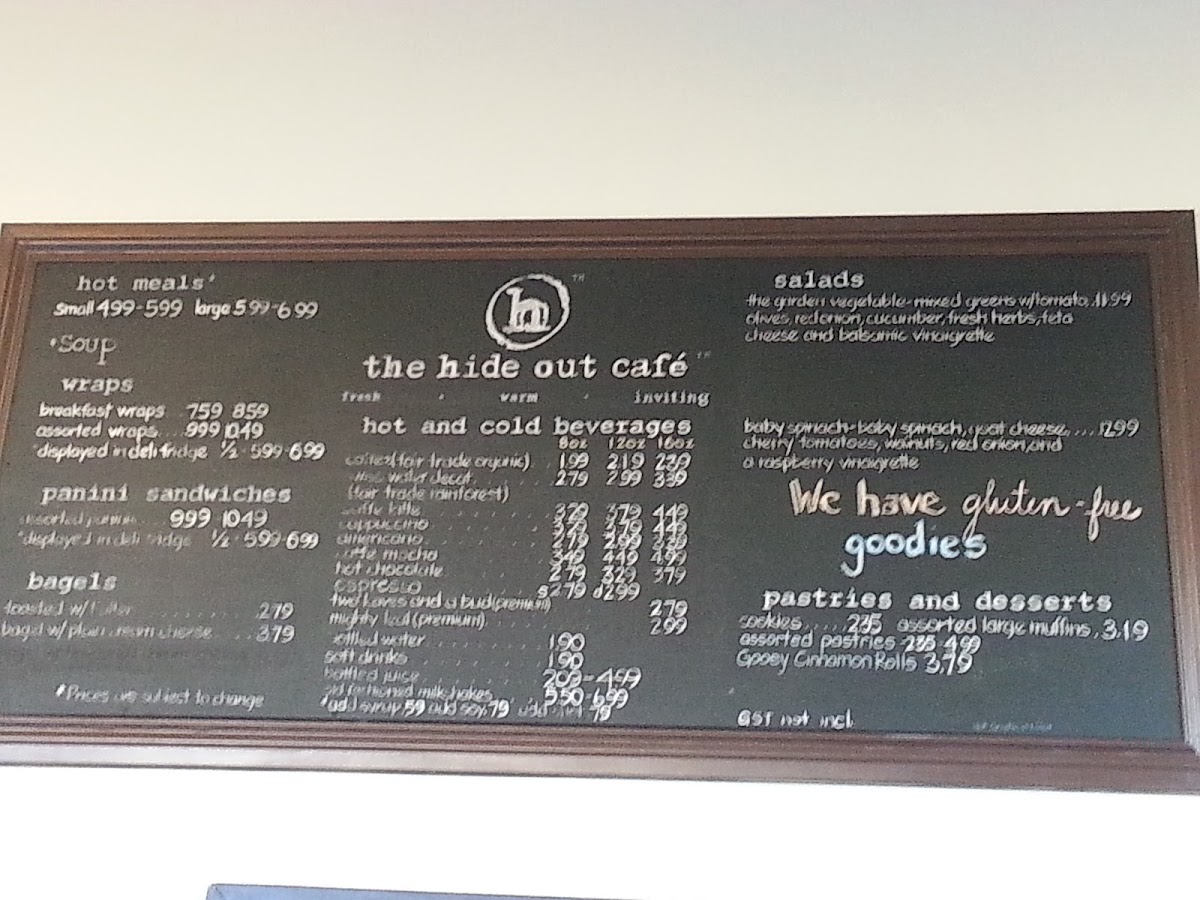 hot meals*
small 499-599 large 599-699
*Soup
wraps
breakfast wraps 759 859
assorted wraps....999 1049
*displayed in deli fridge ½ - 599-699
panini sandwiches
999 1049
*displayed in deli fridge ½ - 599-699
bagels
toasted w/ butter ........ 279
bagel w/ plain cream cheese ... 379
*Prices are subject to change
h TM
the hide out café TM
fresh . warm . inviting
hot and cold beverages
8oz 12oz 16oz
coffee (fair trade organic) .. 199 219 239
swiss water decaf ..... 279 299 339
(fair trade rainforest)
caffe latte 329 379 449
cappuccino 329 379 449
americano 279 299 339
caffe mocha 349 449 499
hot chocolate 279 329 379
espresso s279 d299
two leaves and a bud (premium) 279
mighty leaf (premium) 299
bottled water 190
soft drinks 190
bottled juice 209-459
old fashioned milkshakes 550-699
*add syrup 59 add soy 79 add 79
salads
the garden vegetable-mixed greens w/tomato, 11.99
olives, red onion, cucumber, fresh herbs, feta
cheese and balsamic vinaigrette
baby spinach-baby spinach, goat cheese, .... 1299
cherry tomatoes, walnuts, red onion, and
a raspberry vinaigrette
We have gluten-free
goodies
pastries and desserts
cookies ..... 235 assorted large muffins. 3.19
assorted pastries 235-499
Gooey Cinnamon Rolls 3.79
GST not incl.